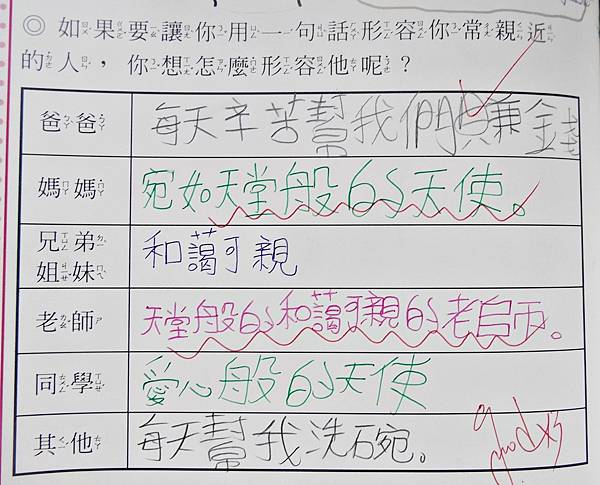 ◎如果要讓你用一句話形容你常親近
的人，你想怎麼形容他呢？
爸爸 每天辛苦幫我們賺錢
媽媽 宛如天堂般的天使。
兄弟
姐妹 和藹可親
老師 天堂般的和藹可親的老師。
同學 愛心般的天使
其他 每天幫我洗碗。
good x3